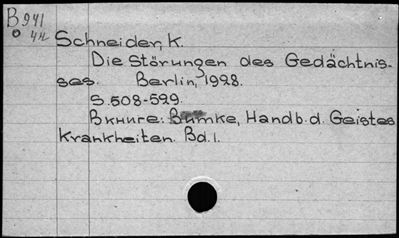 B941
042
Schneider, K.
Die Störungen des Gedächtnis-
ses. Berlin, 1928.
S. 508-529.
В книге: Bumke, Handb. d. Geistes
Krankheiten. Bd. 1.